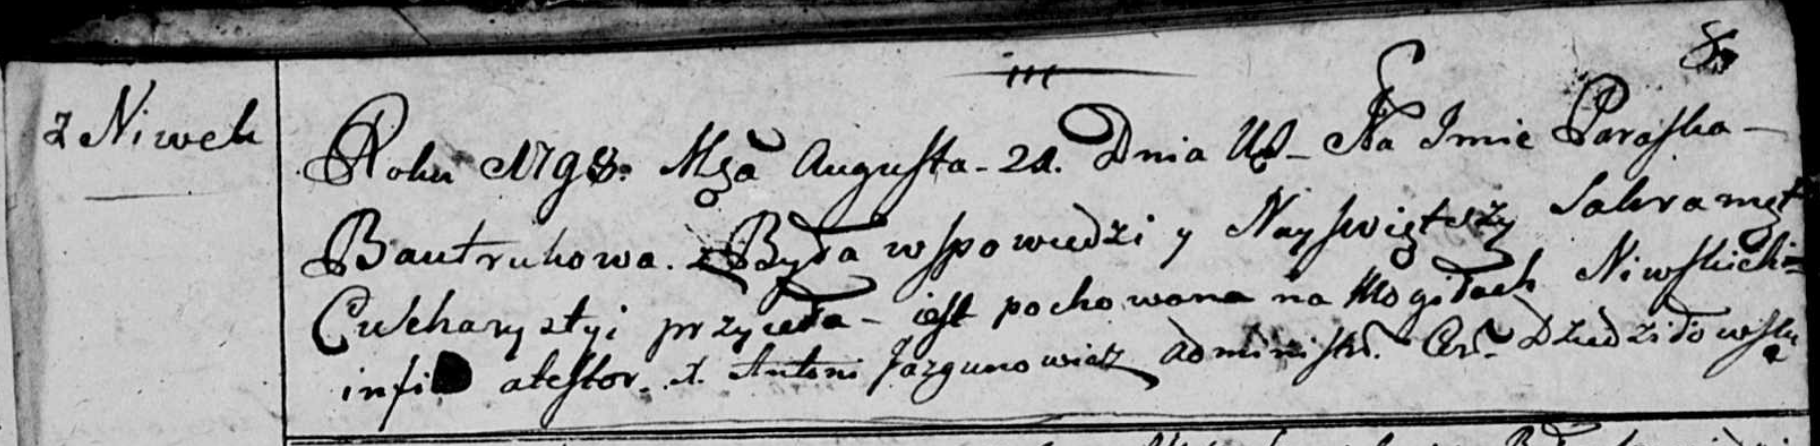 8
z Niwek
Roku 1798. Msca Augusta - 21. Dnia Na Imie Paraska -
Bautrukowa. Była w spowiedzi y Nayswiętszy Sakramęt
Eukharystyi przyieła - iest pochowana na Mogiłach Niwskich =
atestor. X. Antoni Jazgunowicz Administr. Cer. Dziedziłowsku